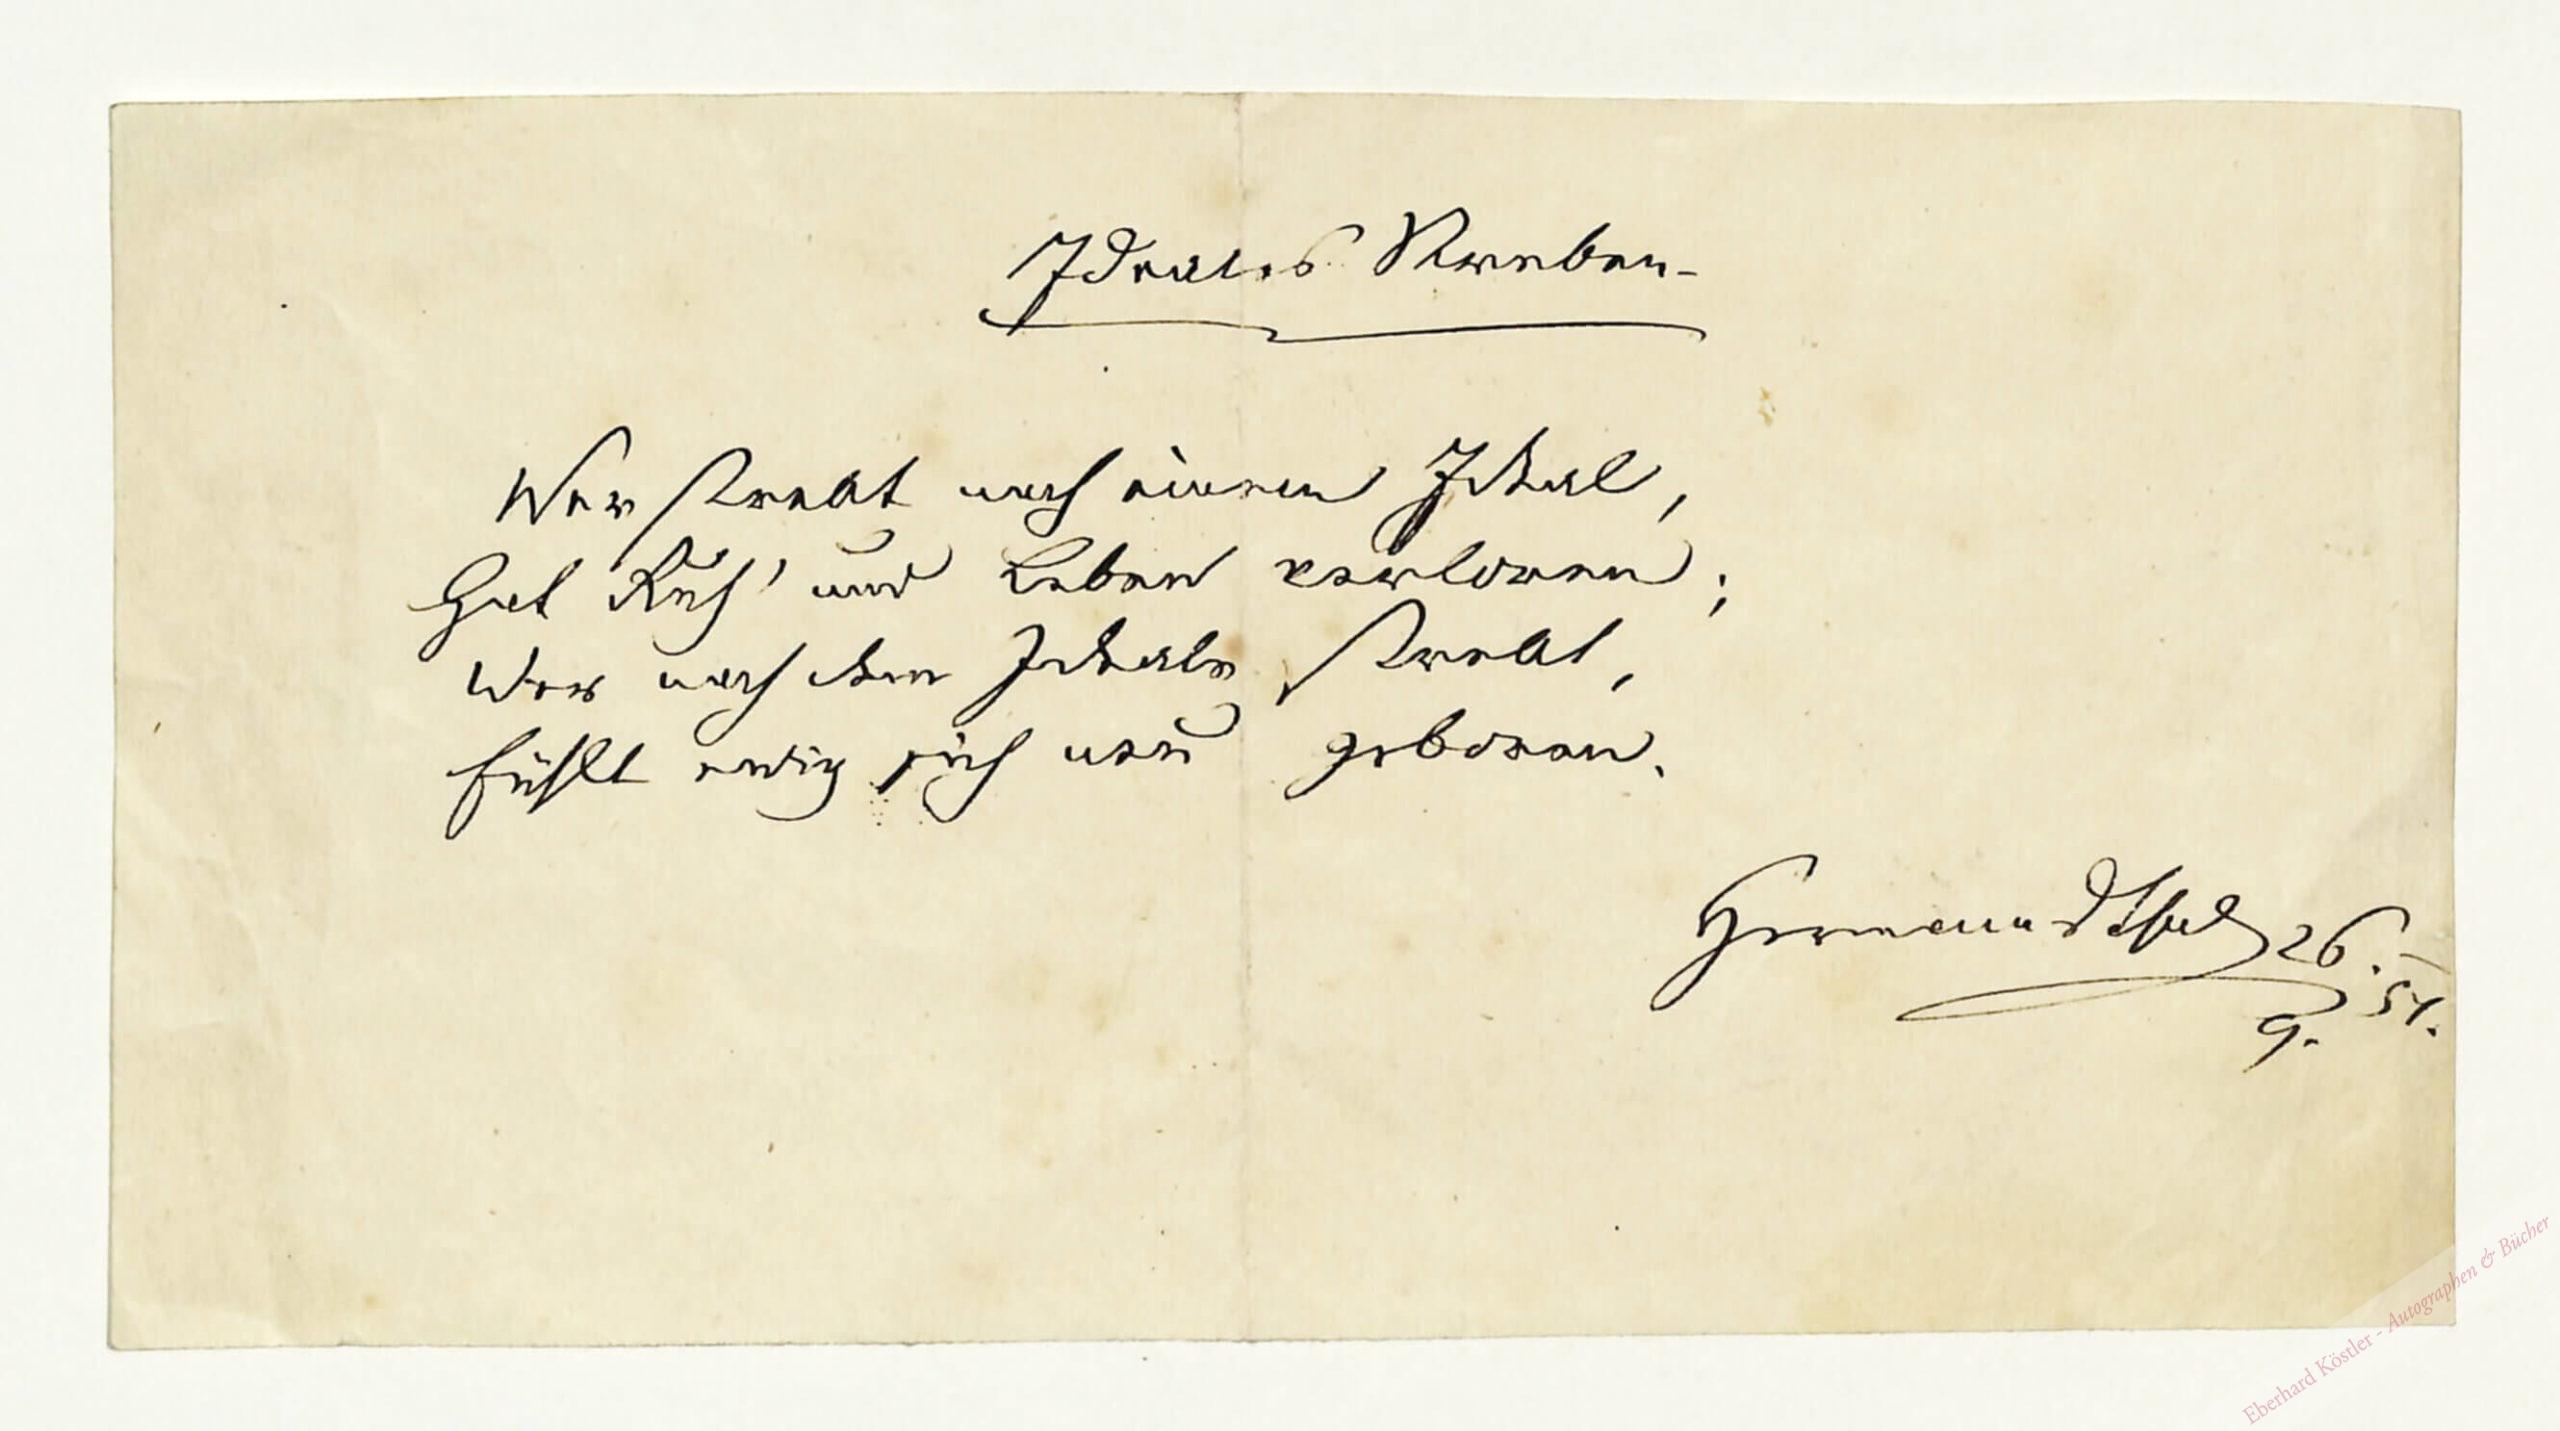 Ideales Streben-
Wer strebt nach einem Ideal,
Hat Ruh' und Leben verloren;
Wer nach dem Ideale strebt,
Fühlt ewig sich neu geboren.
Hermann 26.
9.
Eberhard Köstler - Autographen & Bücher